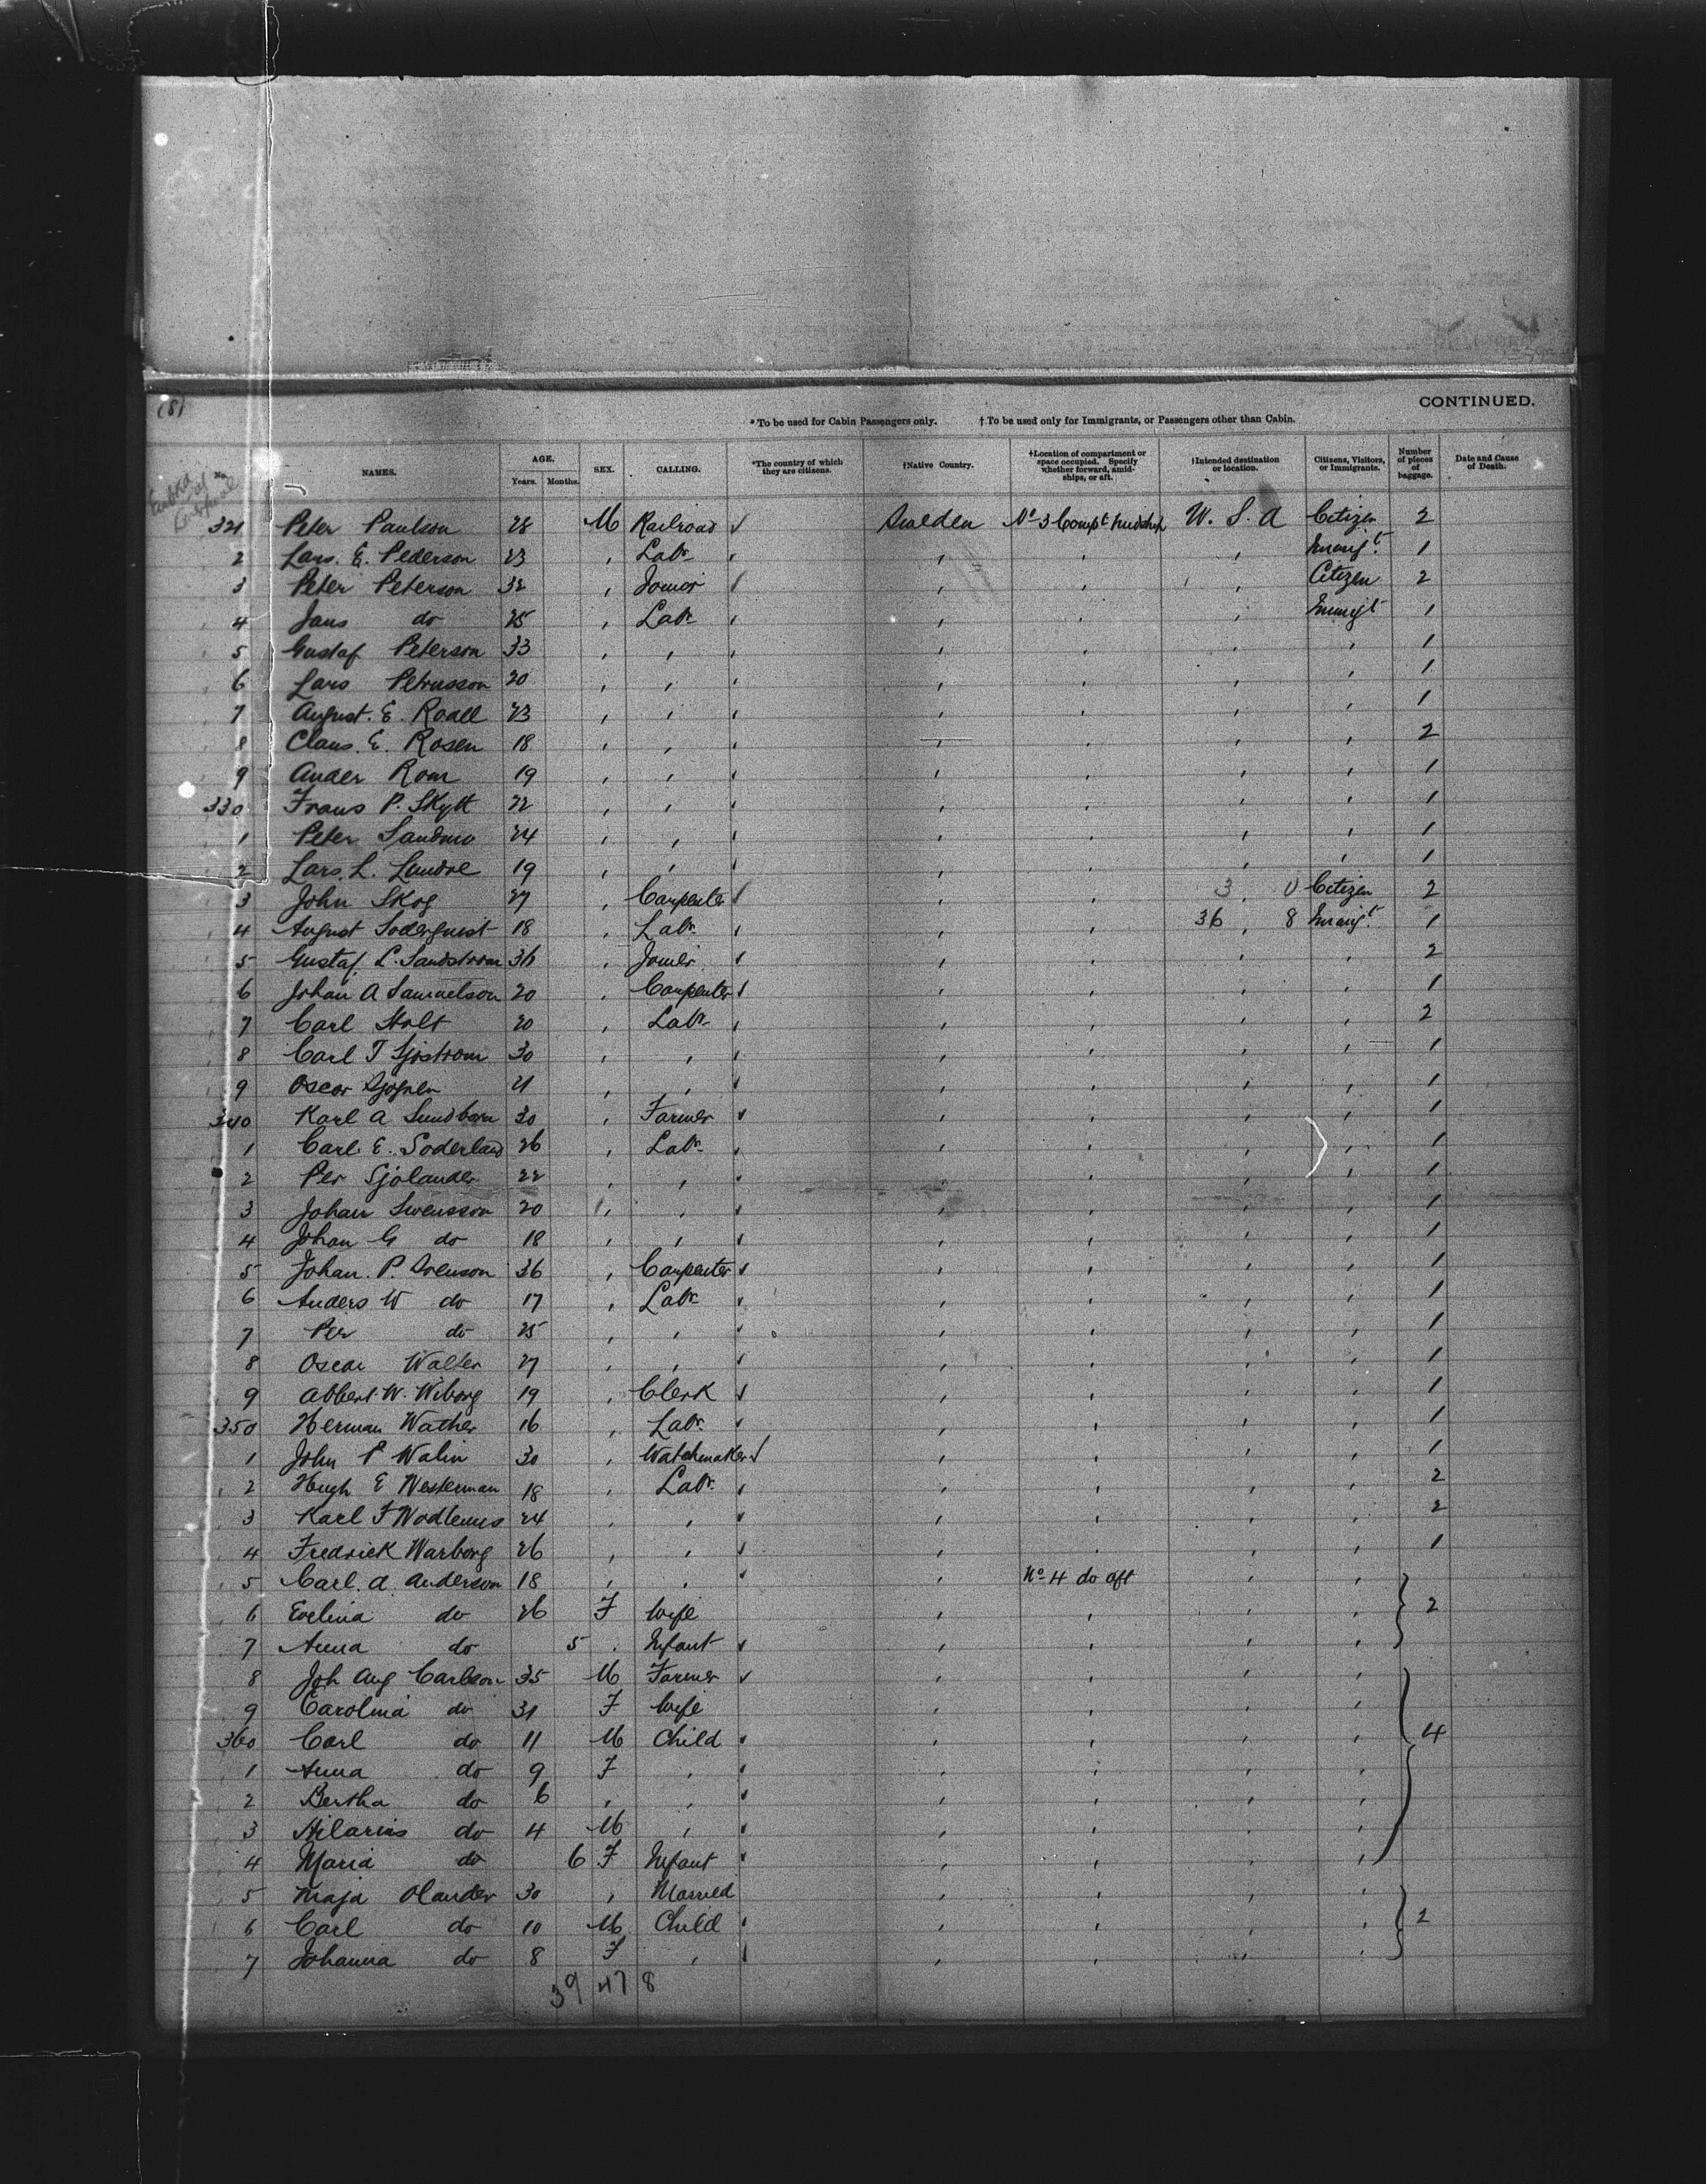 (8)
CONTINUED.
*To be used for Cabin Passengers only. †To be used only for Immigrants, or Passengers other than Cabin.
No. NAMES. AGE. Years. Months. SEX. CALLING. *The country of which they are citizens. †Native Country. †Location of compartment or space occupied. Specify whether forward, amidships, or aft. †Intended destination or location. Citizens, Visitors, or Immigrants. Number of pieces of baggage. Date and Cause of Death.
321 Peter Paulson 28 M Railroad Sweden No 3 Compt midship U. S. A Citizen 2
2 Lars. E. Pederson 23 , Labr , , , Emmigt. 1
3 Peter Peterson 32 , Joiner , , , Citizen 2
4 Jans do 25 , Labr , , , Emmigt 1
5 Gustaf Peterson 33 , , , , , , 1
6 Lars Petrusson 20 , , , , , , 1
7 August. E. Roall 23 , , , , , , 1
8 Claus. E. Rosen 18 , , , , , , 2
9 Ander Rom 19 , , , , , , 1
330 Frans P. Skytt 22 , , , , , , 1
1 Peter Sandmo 24 , , , , , , 1
2 Lars. L. 19 , , , , , , 1
3 John Skog 27 , Carpenter , , 3 , 0 Citizen 2
4 August Soderquist 18 , Labr , , 36 , 8 Emmigt. 1
5 Gustaf. L. Sandstrom 36 , Joiner , , , , 2
6 Johan A Samuelson 20 , Carpenter , , , , 1
7 Carl Stolt 20 , Labr , , , , 2
8 Carl T Sjostrom 30 , , , , , , 1
9 Oscar Sjogren 21 , , , , , , 1
340 Karl A Sundborn 30 , Farmer , , , , 1
1 Carl. E. Soderland 26 , Labr , , , , 1
2 Per Sjolander 22 , , , , , , 1
3 Johan Swensson 20 , , , , , , 1
4 Johan G do 18 , , , , , , 1
5 Johan. P. Svenson 36 , Carpenter , , , , 1
6 Anders W do 17 , Labr , , , , 1
7 Per do 25 , , , , , , 1
8 Oscar Walter 27 , , , , , , 1
9 Albert W. Wiborg 19 , Clerk , , , , 1
350 Herman Wather 16 , Labr , , , , 1
1 John P Walin 30 , Watchmaker , , , , 1
2 Hugh E Westerman 18 , Labr. , , , , 2
3 Karl F 24 , , , , , , 2
4 Fredrick Warborg 26 , , , , , , 1
5 Carl. A. Anderson 18 , , , No 4 do aft , ,
6 Evelina do 26 F Wife , , , , 2
7 Anna do 5 , Infant , , , ,
8 Joh Aug Carlson 35 M Farmer , , , ,
9 Carolina do 31 F Wife , , , ,
360 Carl do 11 M Child , , , , 4
1 Anna do 9 F , , , , ,
2 Bertha do 6 , , , , , ,
3 Hilarius do 4 M , , , , ,
4 Maria do 6 F Infant , , , ,
5 Maja Olander 30 , Married , , , ,
6 Carl do 10 M Child , , , , 2
7 Johanna do 8 F , , , , ,
39 47 8